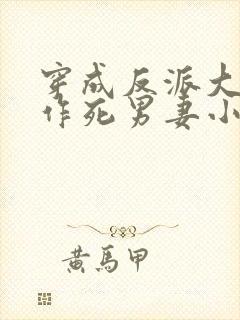 穿成反派大
作死男妻小
黄馬甲